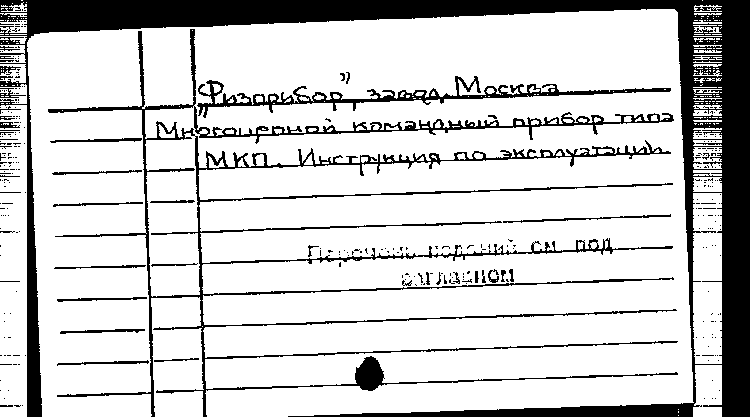 „Физприбор”, завод. Москва
Многоцепной командный прибор типа
МКП. Инструкция по эксплуатации.
Перечень изданий см. под
заглавием